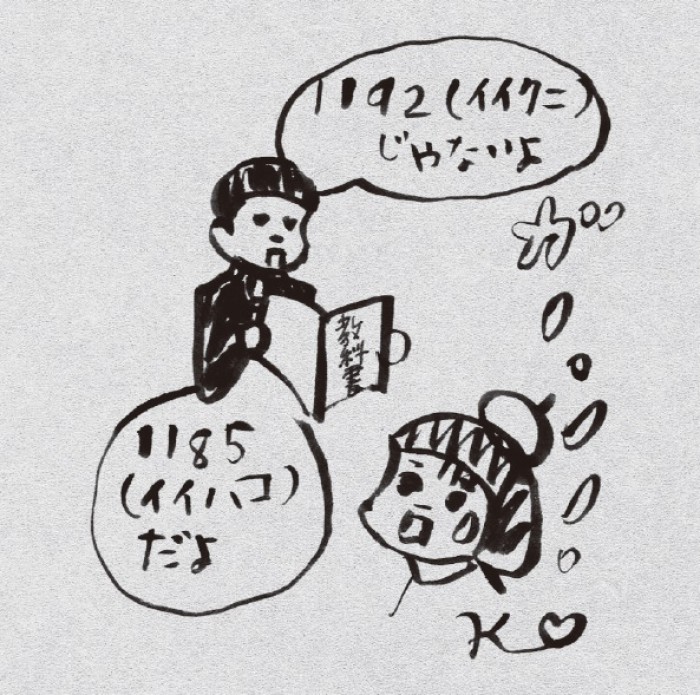 1192(イイクニ)
じゃないよ
教科書
1185
(イイハコ)
だよ
ガ゛ーン
K♡